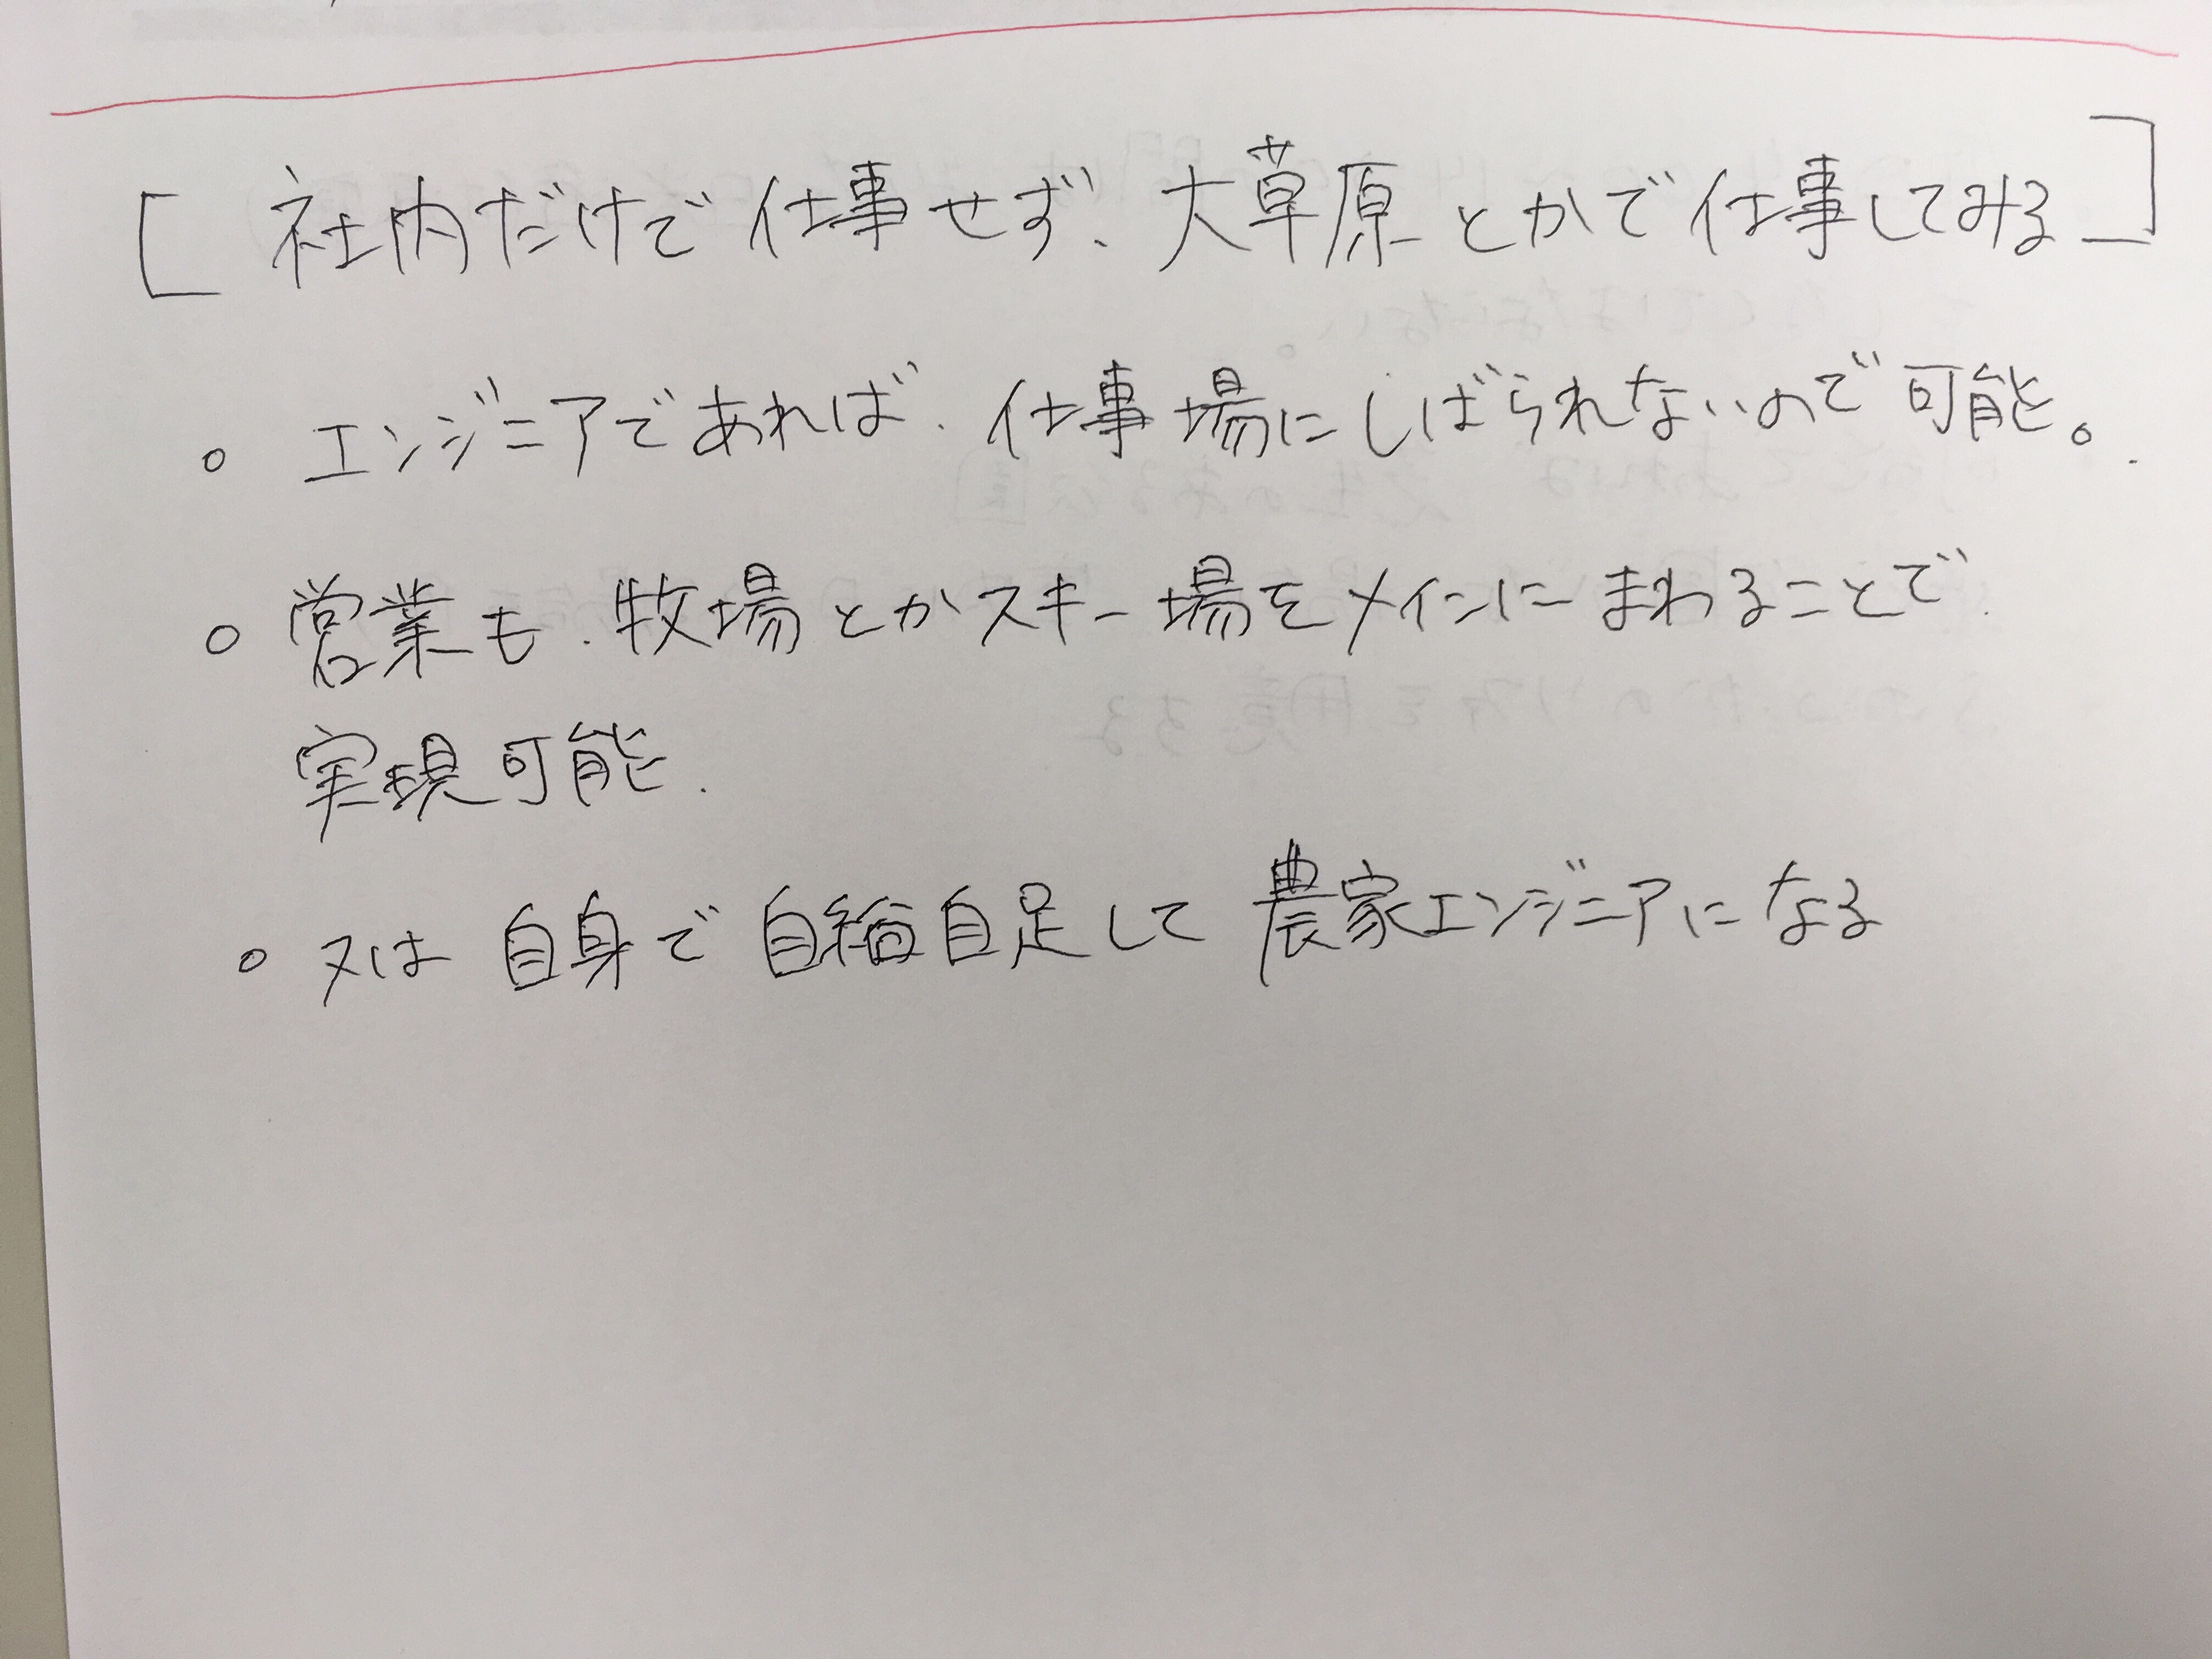 [ 社内だけで仕事せず、大草原とかで仕事してみる ]
。エンジニアであれば、仕事場にしばられないので可能。
。営業も、牧場とかスキー場をメインにまわることで、
実現可能、
。又は自身で自給自足して農家エンジニアになる